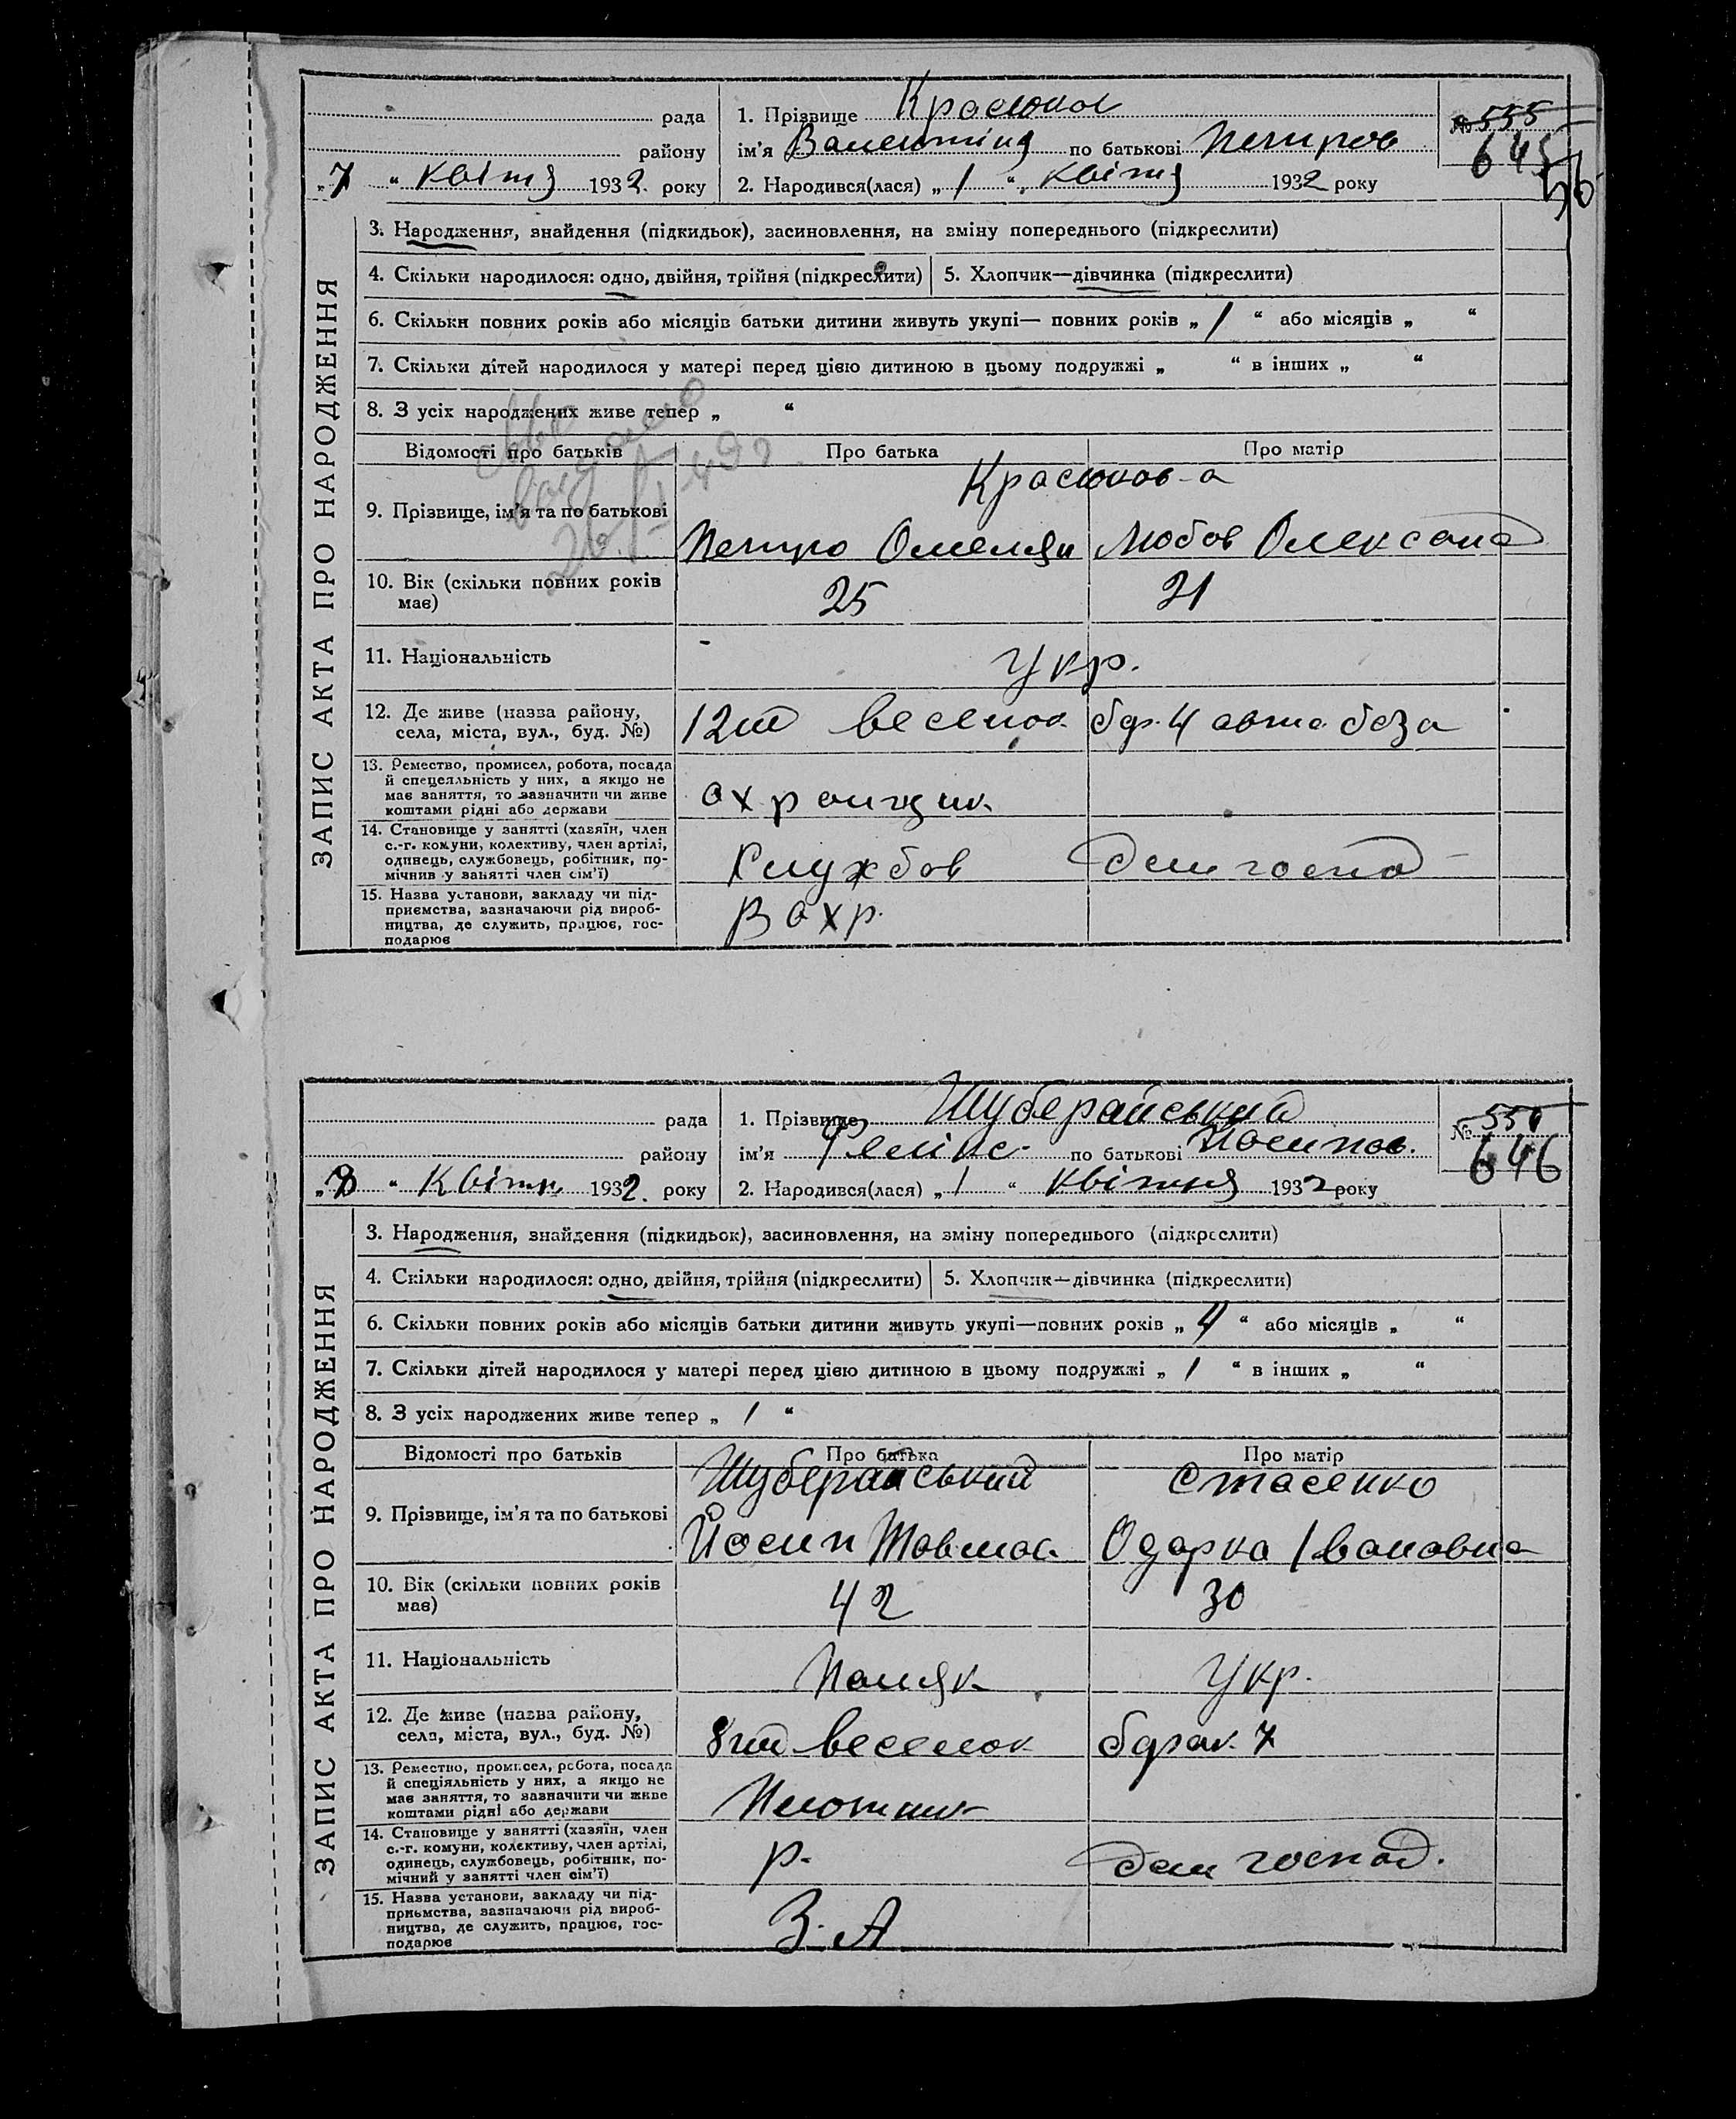 рада
1. Прізвище Красюков
№ 555
району
ім'я Валентіна по батькові Петров
645
56
„7“ Квітня 1932. року
2. Народився(лася) „1“ Квітня 1932 року
ЗАПИС АКТА ПРО НАРОДЖЕННЯ
3. Народження, знайдення (підкидьок), засиновлення, на зміну попереднього (підкреслити)
4. Скільки народилося: одно, двійня, трійня (підкреслити)
5. Хлопчик—дівчинка (підкреслити)
6. Скільки повних років або місяців батьки дитини живуть укупі— повних років „1“ або місяців „ “
7. Скільки дітей народилося у матері перед цією дитиною в цьому подружжі „ “ в інших „ “
8. З усіх народжених живе тепер „ “
Відомості про батьків
Про батька
Про матір
Красюков-а
9. Прізвище, ім'я та по батькові
Петро Омелян
Любов Олександ
10. Вік (скільки повних років має)
25
21
11. Національність
Укр.
12. Де живе (назва району, села, міста, вул., буд. №)
12ш веселок
бар. 4 авто база
13. Ремество, промисел, робота, посада
й спецеяльність у них, а якщо не
має заняття, то зазначити чи живе
коштами рідні або держави
охранщик
14. Становище у занятті (хазяїн, член
с.-г. комуни, колективу, член артілі,
одинець, службовець, робітник, по-
мічнив у занятті член сім'ї)
Службов
дом господ
15. Назва установи, закладу чи під-
приємства, зазначаючи рід вироб-
ництва, де служить, працює, гос-
подарює
Вохр.
рада
1. Прізвище Шуберайський
№ 556
району
ім'я Фелікс по батькові Йосипов.
646
„8“ Квітн. 1932. року
2. Народився(лася) „1“ Квітня 1932 року
ЗАПИС АКТА ПРО НАРОДЖЕННЯ
3. Народження, знайдення (підкидьок), засиновлення, на зміну попереднього (підкреслити)
4. Скільки народилося: одно, двійня, трійня (підкреслити)
5. Хлопчик—дівчинка (підкреслити)
6. Скільки повних років або місяців батьки дитини живуть укупі—повних років „4“ або місяців „ “
7. Скільки дітей народилося у матері перед цією дитиною в цьому подружжі „1“ в інших „ “
8. З усіх народжених живе тепер „1“
Відомості про батьків
Про батька
Про матір
Шуберайський
Стасенко
9. Прізвище, ім'я та по батькові
Йосип
Одарка Івановна
10. Вік (скільки повних років має)
42
30
11. Національність
Поляк
Укр.
12. Де живе (назва району, села, міста, вул., буд. №)
8ш веселок
барак 7
13. Ремество, промисел, робота, посада
й спеціяльність у них, а якщо не
має заняття, то зазначити чи живе
коштами рідні або держави
Плотник
14. Становище у занятті (хазяїн, член
с.-г. комуни, колективу, член артілі,
одинець, службовець, робітник, по-
мічний у занятті член сім'ї)
р.
дом господ.
15. Назва установи, закладу чи під-
приємства, зазначаючи рід вироб-
ництва, де служить, працює, гос-
подарює
З. А